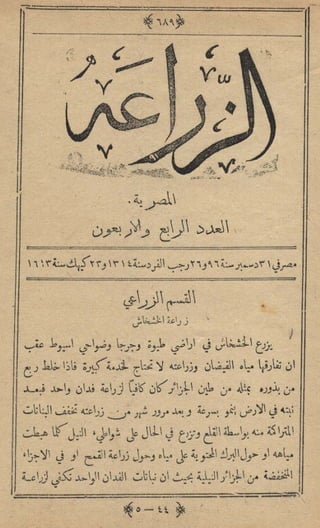 ٦٨٩
الزراعة
المصرية.
العدد الرابع والاربعون
مصر في ٣١ دسمبر سنة ٩٦ و٢٦ رجب الفرد سنة ١٣١٤ و٢٣ كيهك سنة ١٦١٣
القسم الزراعي
زراعة الخشخاش
يزرع الخشخاش في اراضي طيوة وجرجا وضواحي اسيوط عقب
ان تفارقها مياه الفيضان وزراعته لا تحتاج لخدمة كبيرة فاذا خلط ربع
من بذوره بمثله من طين الجزائر كان كافيًا لزراعة فدان واحد فبعد
نبته في الارض ينمو بسرعة وبعد مرور شهر من زراعته تخفف النباتات
المتراكمة منه بواسطة القلع وتزرع في الحال على شواطيء النيل كلما هبطت
مياهه او حول البرك المحتوية على مياه وحول زراعة القمح او في الاجزاء
المنخفضة من الجزائر النيلية بحيث ان نباتات الفدان الواحد تكفي لزراعة
٤٤ — ٥